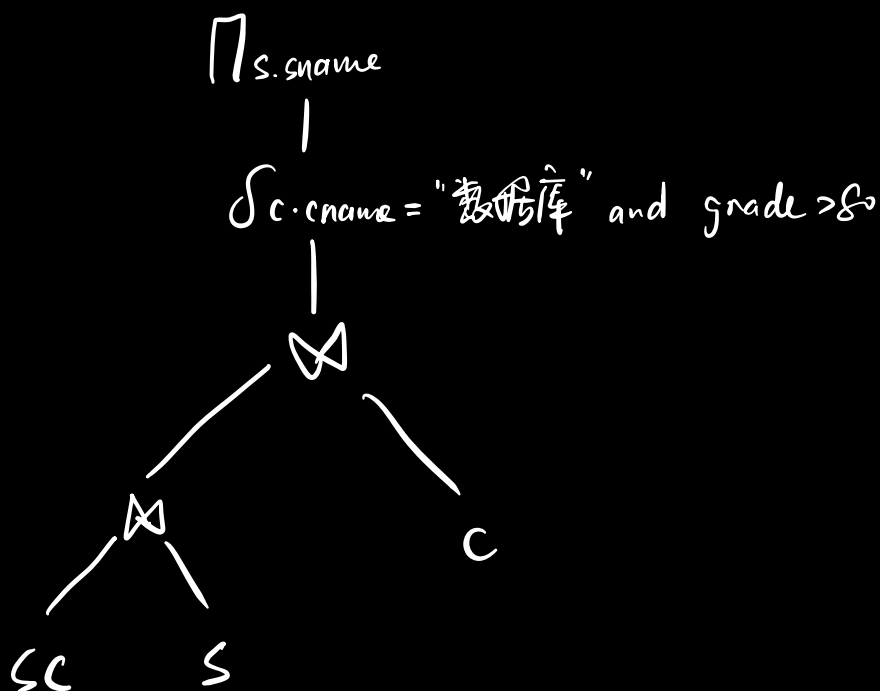 ∏ s.sname
δ c.cname = "数据库" and grade >80
⋈
⋈
C
SC S